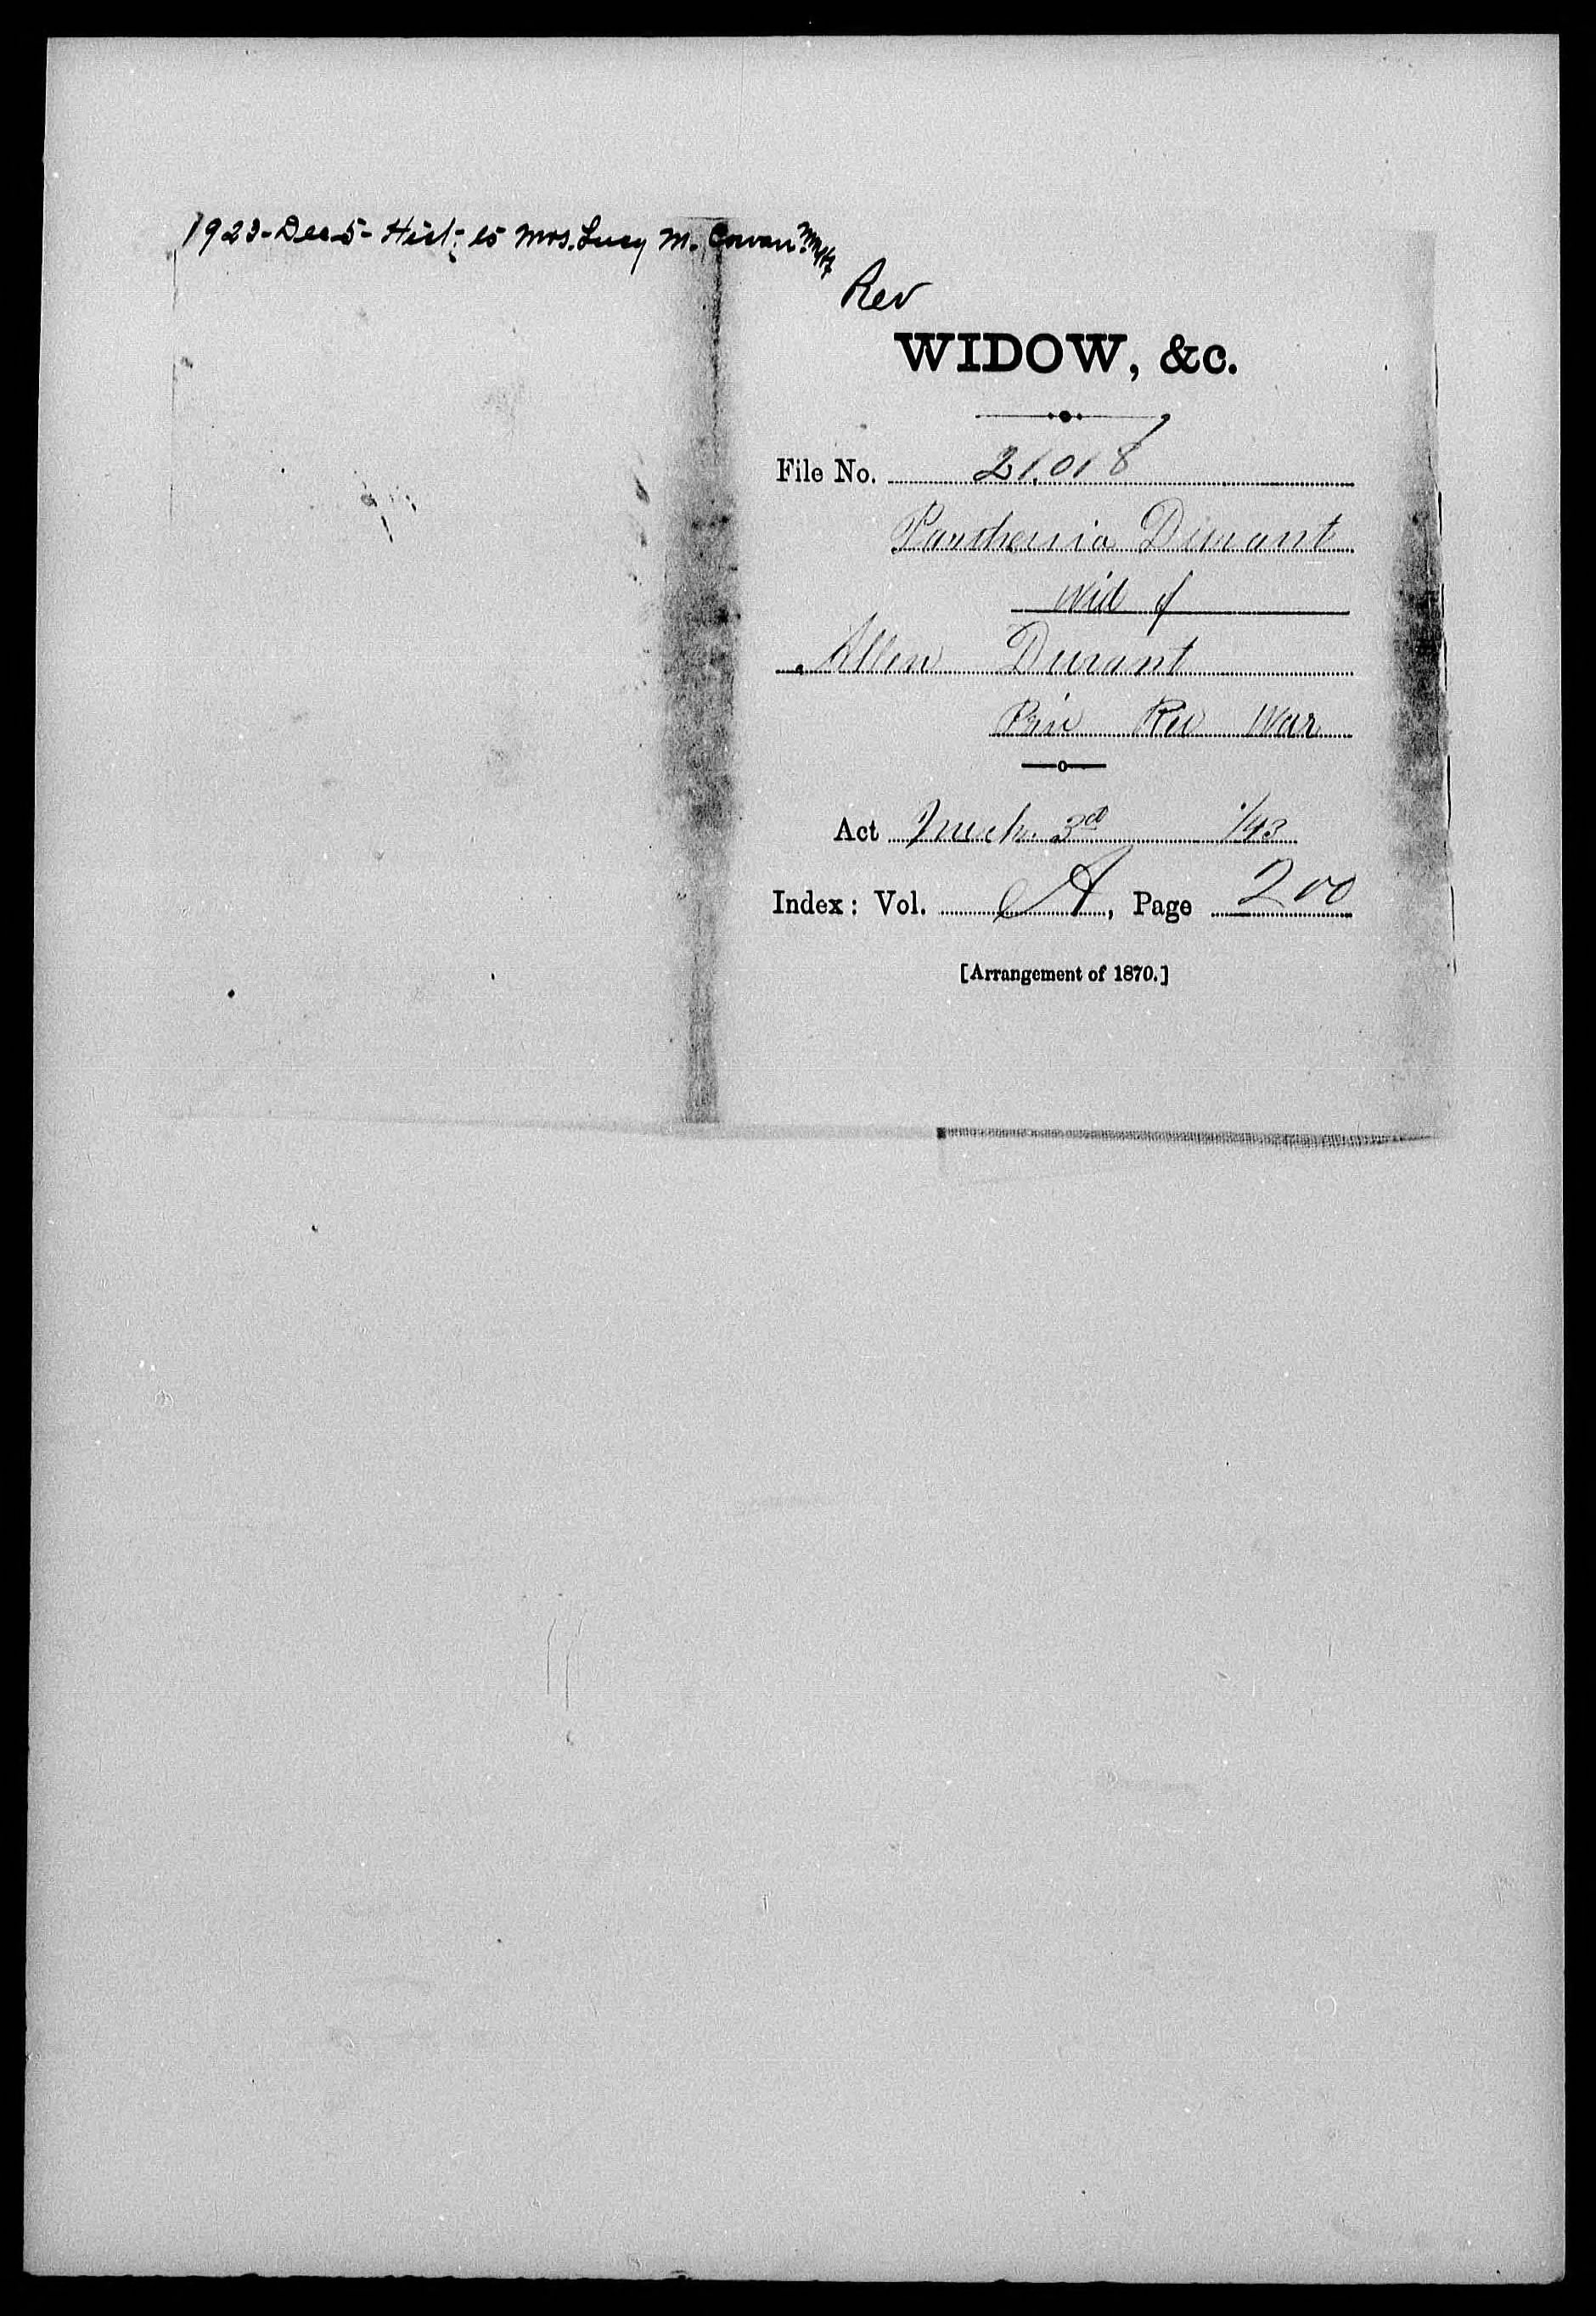 1923-Dec 5- Hist. to Mrs. Lucy M. Cowan.
Rev
WIDOW, &c.
File No. 21.018
Parthenia Durant
Wid of
Allen Durant
Priv Rev War
Act March 3rd 1/43
Index: Vol. A, Page 200
[Arrangement of 1870.]